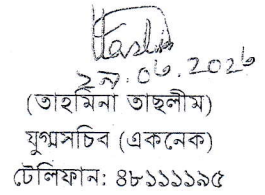 ২৯.০৬.2026
(তাহমিনা তাছলীম)
যুগ্মসচিব (একনেক)
টেলিফোন: ৪৮১১১১৯৫